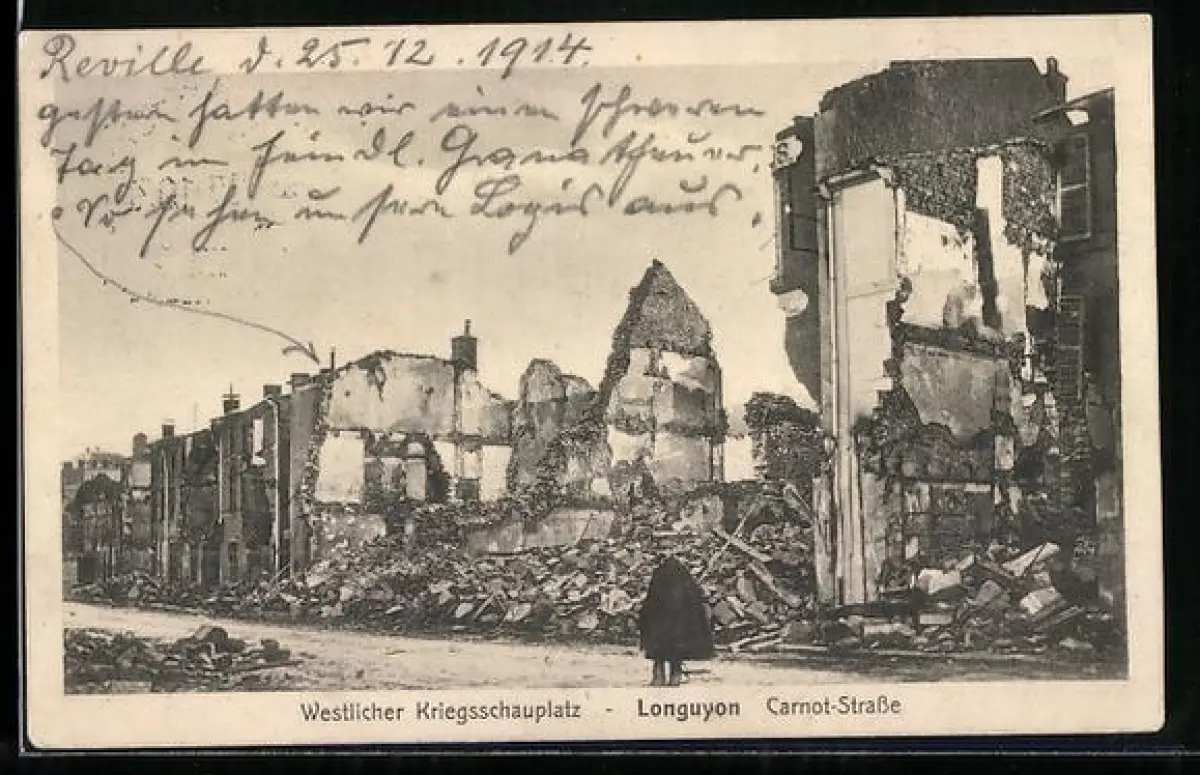 Reville d. 25. 12. 1914.
gestern hatten wir einen schweren
Tag in feindl. Granatfeuer.
So sahen unsere Logis aus.
Westlicher Kriegsschauplatz - Longuyon Carnot-Straße